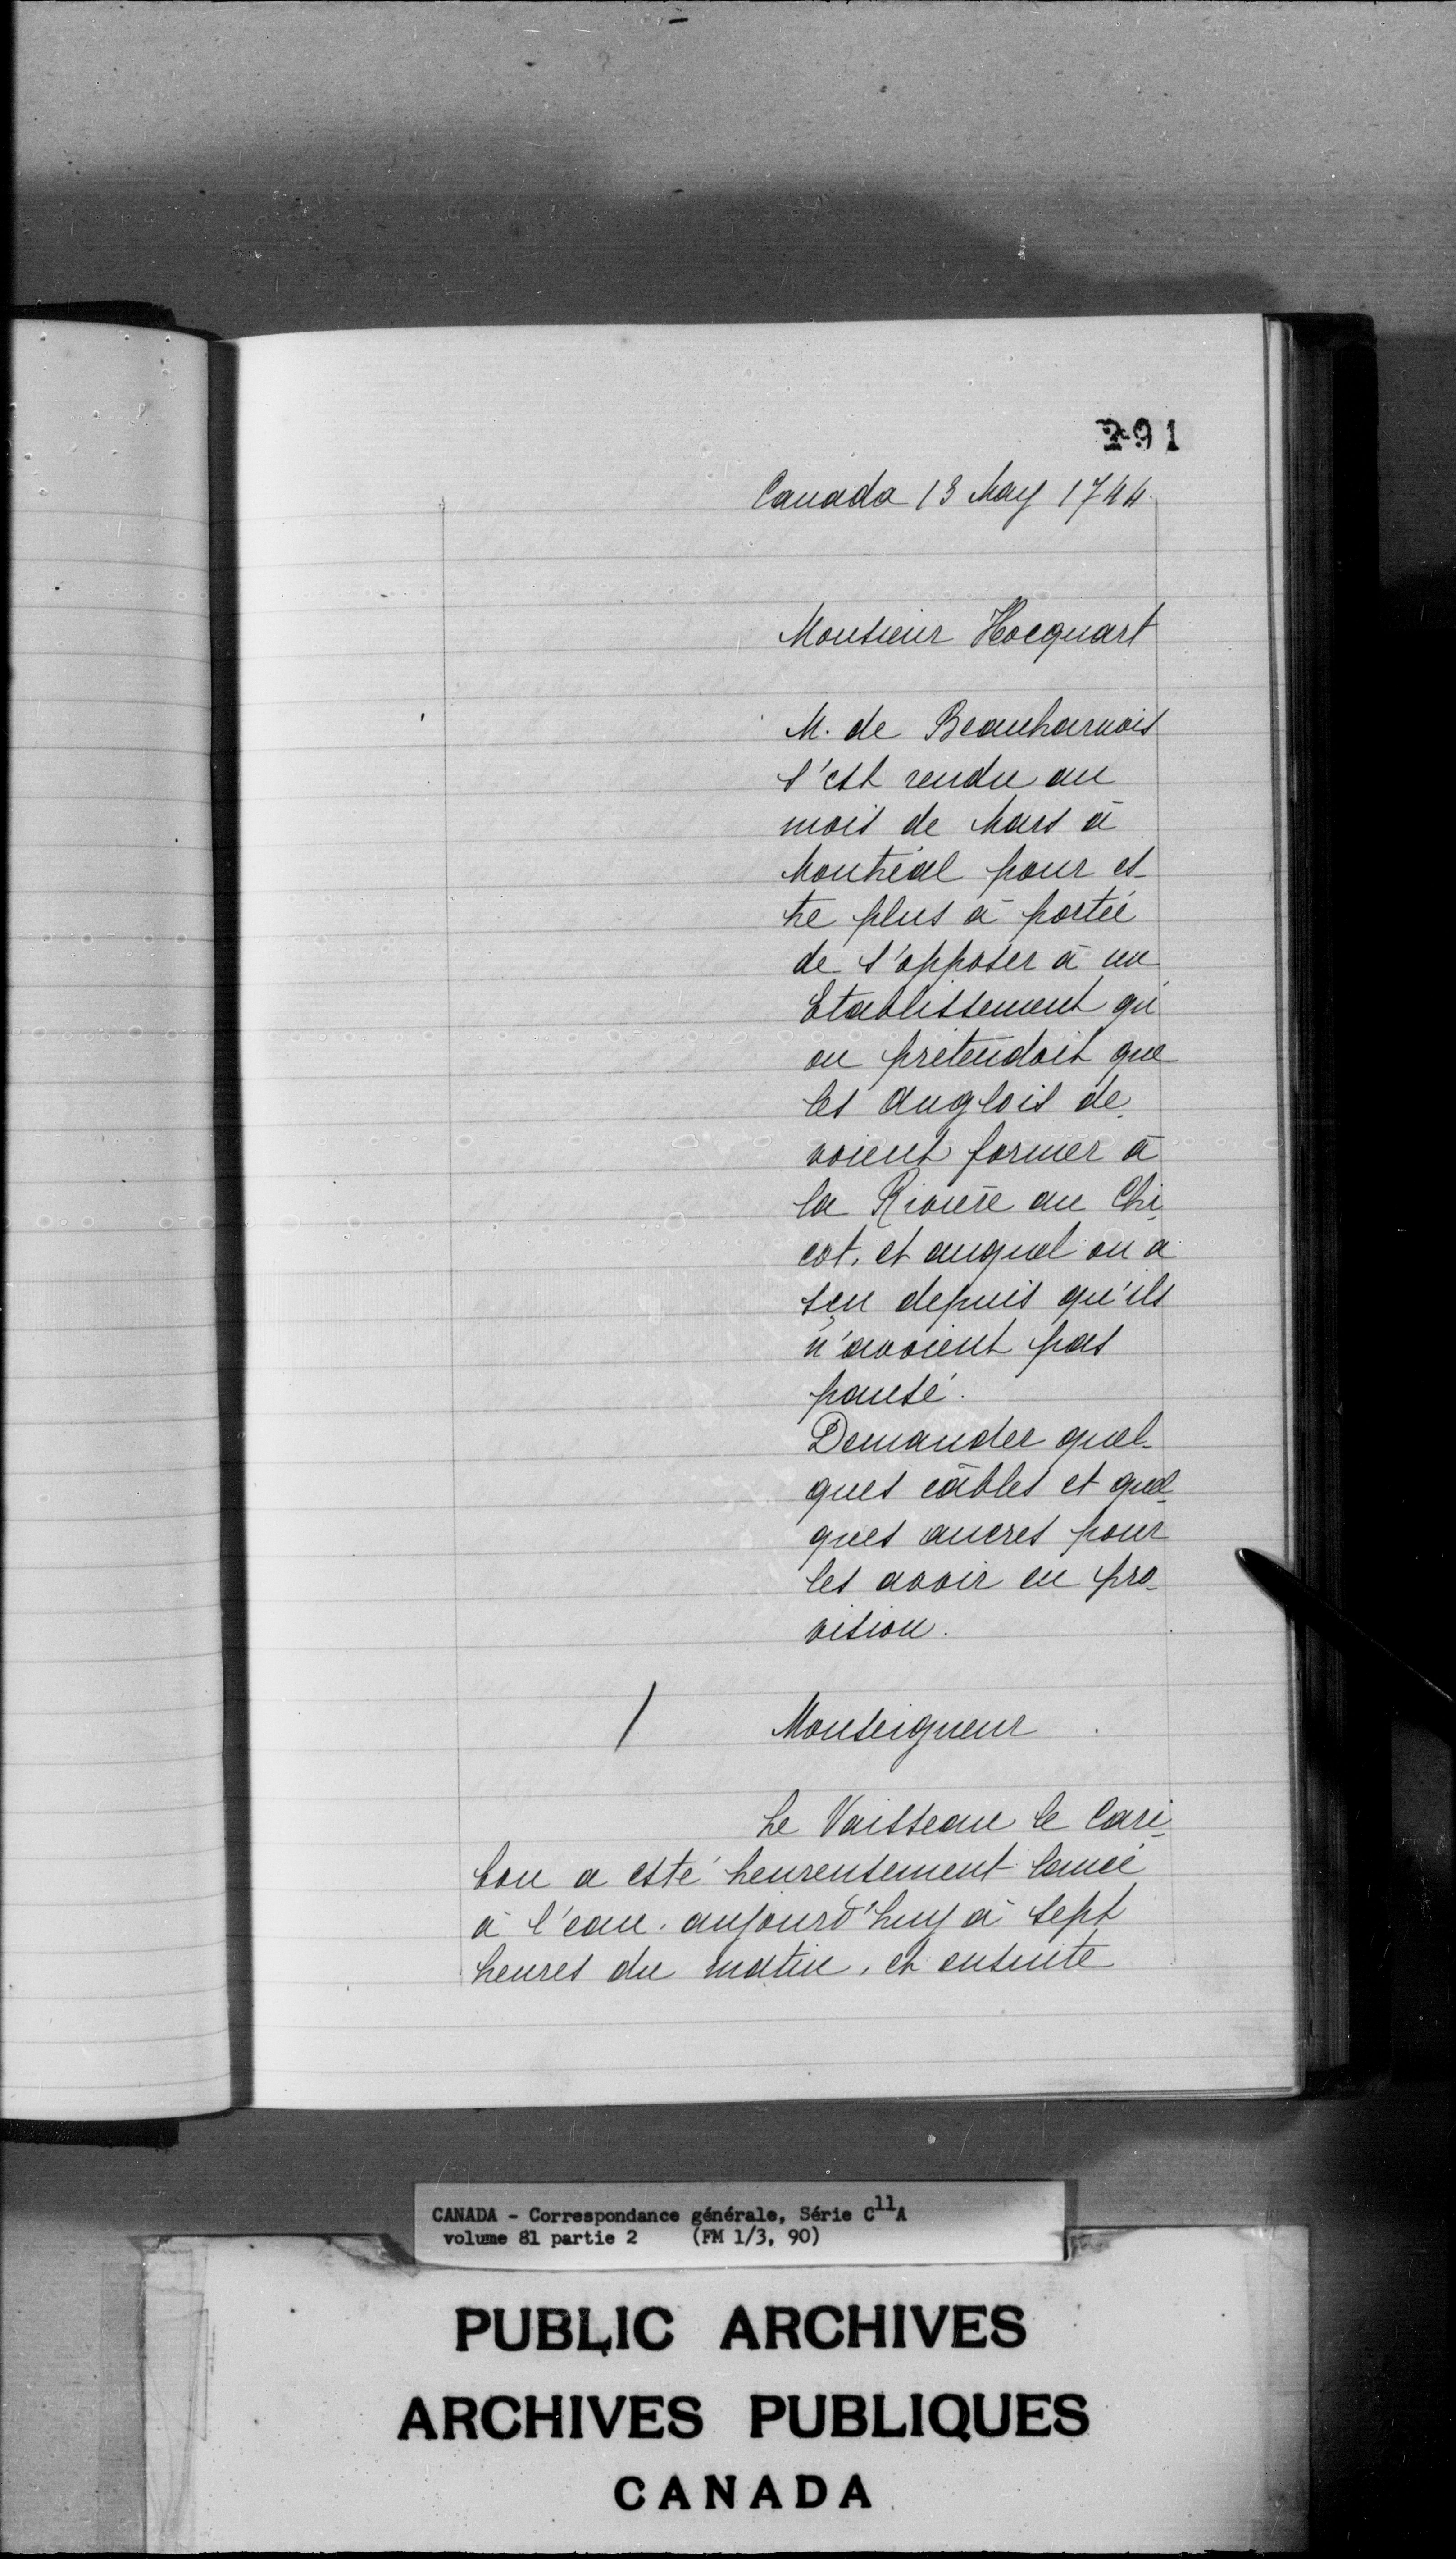 291
Canada 13 May 1744.
Monsieur Hocquart
M. de Beauharnois
s'est rendu au
mois de Mars à
Montréal pour es-
tre plus à portée
de s'opposer à un
Etablissement qu'
on prétendoit que
les Anglois de-
voient former à
la Rivière au Chi-
cot, et auquel on a
sçu depuis qu'ils
n'avoient pas
pansé.
Demander quel-
ques câbles et quel-
ques ancres pour
les avoir en pro-
vision.
/ Monseigneur
Le Vaisseau le Cari-
bou a esté heureusement lancé
à l'eau aujourd'huy à sept
heures du matin, et ensuite
CANADA - Correspondance générale, Série C11A
volume 81 partie 2 (FM 1/3, 90)
PUBLIC ARCHIVES
ARCHIVES PUBLIQUES
CANADA